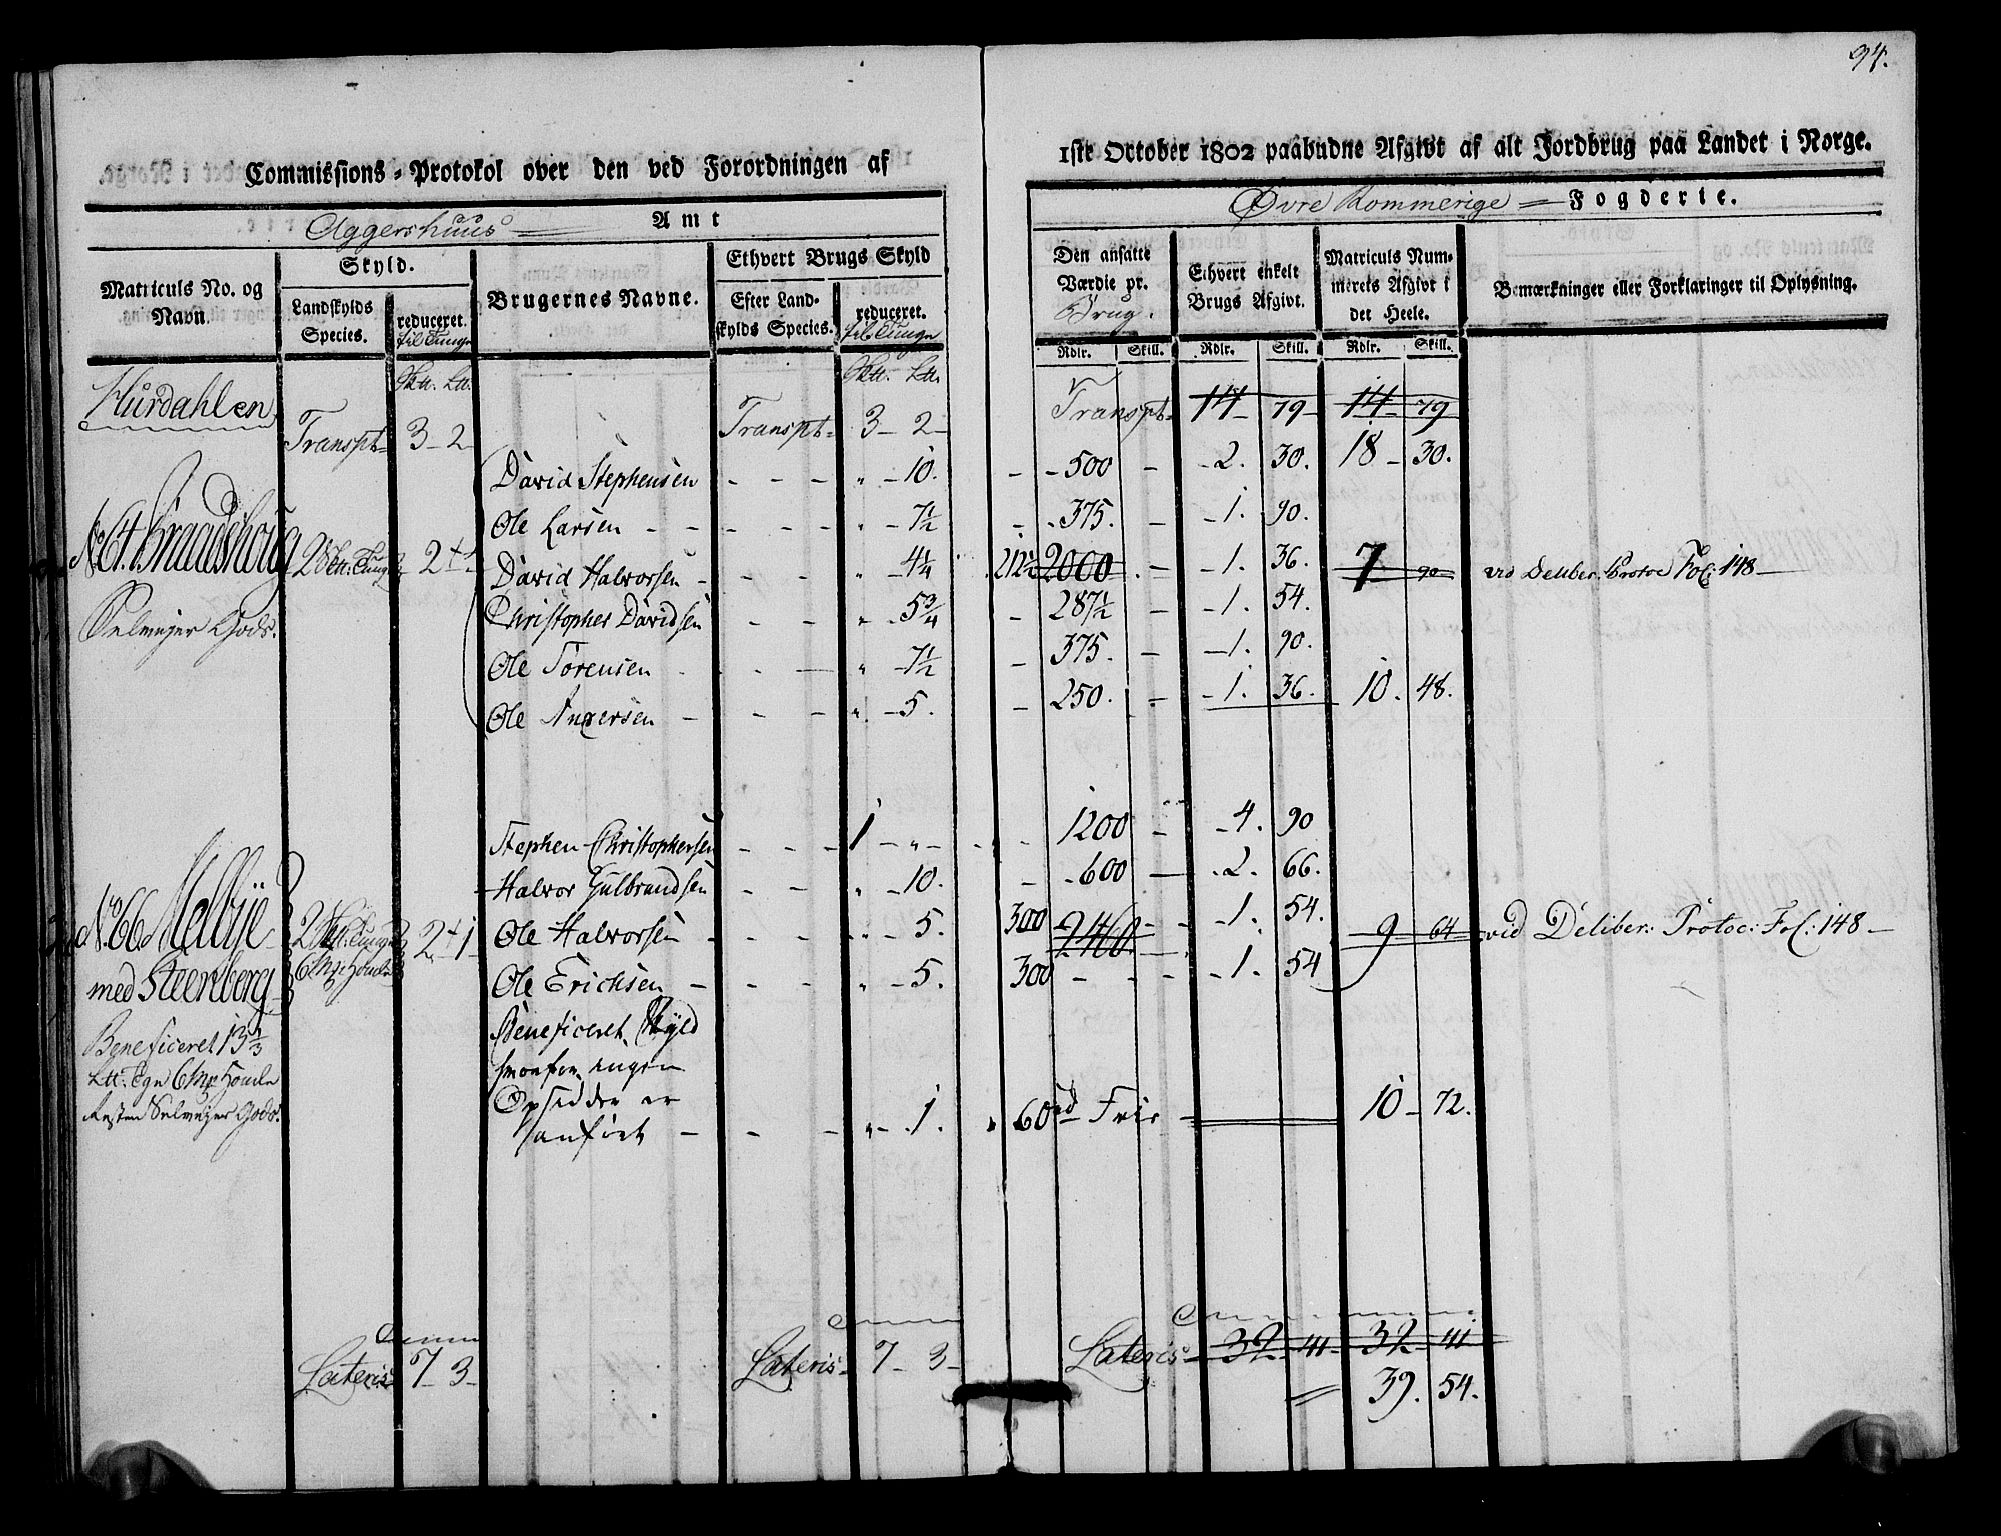 94.
Commissions-Protokol over den ved Forordningen af
1ste October 1802 paabudne Afgivt af alt Jordbrug paa Landet i Norge.
Aggershuus Amt
Øvre Rommerige Fogderie.
Matriculs No. og Navn.
Skyld.
Landskylds Species.
reduceret. til Tunge
Brugernes Navne.
Ethvert Brugs Skyld
Efter Landskylds Species.
reduceret. til Tunge
Den ansatte Værdie pr. Brug.
Ethvert enkelt Brugs Afgivt.
Matriculs Nummerets Afgivt i det Heele.
Bemærkninger eller Forklaringer til Oplysning.
Rdlr. Skill. Rdlr. Skill. Rdlr. Skill.
Hurdahlen
Transpt 3 - 2 Transpt 3 - 2 - Transpt 14 - 79 - 14 - 79
David Stephensen - - - " - 10. - - 500 - - 2. 30. 18 - 30.
Ole Larsen - - - - - " - 7½ - - 375. - - 1. 90.
No 64
David Halvorsen - - - " - 4¼ 212½ 2000 - 1. 36. 7 90 vid Deliber. Protoc Fol: 148 -
Christopher Davidsen - - " - 5¾ - 287½ - - 1. 54.
Selvejer Gods.
Ole Sørensen - - - " - 7½ - 375. - - 1. 90.
Ole Andersen - - - " - 5. - 250. - - 1. 36. 10. 48.
Stephen Christophersen - - - 1 - " - - 1200 - - 4. 90
Halvor Gulbrandsen - - " - 10. - - 600 - - 2. 66.
No 66 Melbye 2 2 + 1
Ole Halvorsen - - - " - 5. 300 2460 - - 1. 54. 9 64 vid Deliber: Protoc: Fol: 148 -
med Steenberg
Ole Erichsen - - - " - 5. 300 - - - 1. 54
Beneficeret 13⅓
Beneficeret Skyld
hvorfor ingen
Resten Selvejer Gods.
Opsidder er
anført - - - " - 1. 60 rd Frie 10 - 72.
Lateris 7 - 3 - Lateris - 7 - 3 - Lateris - 32 - 41 - 32 - 41
39. 54.